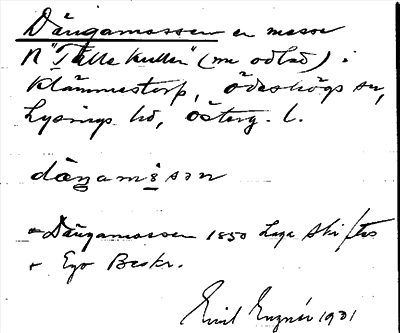 Dängamossen en mosse
N "Tälle kullen" (nu odlad) i
Klämmestorp, Ödeshögs sn,
Lysings hd, Österg. l.
däŋamåsən
Dängamossen 1850 Laga Skiftes
Ego Beskr.
Emil 1931